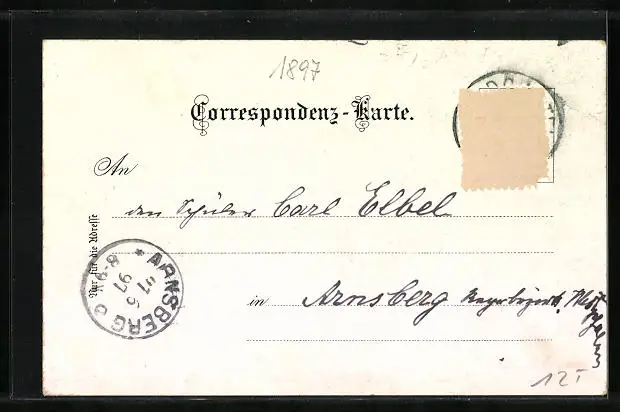 1897
Correspondenz-Karte.
An
den Schüler Carl Elbel
Nur für die Adresse
ARNSBERG
97
8-9 N
in Arnsberg
12